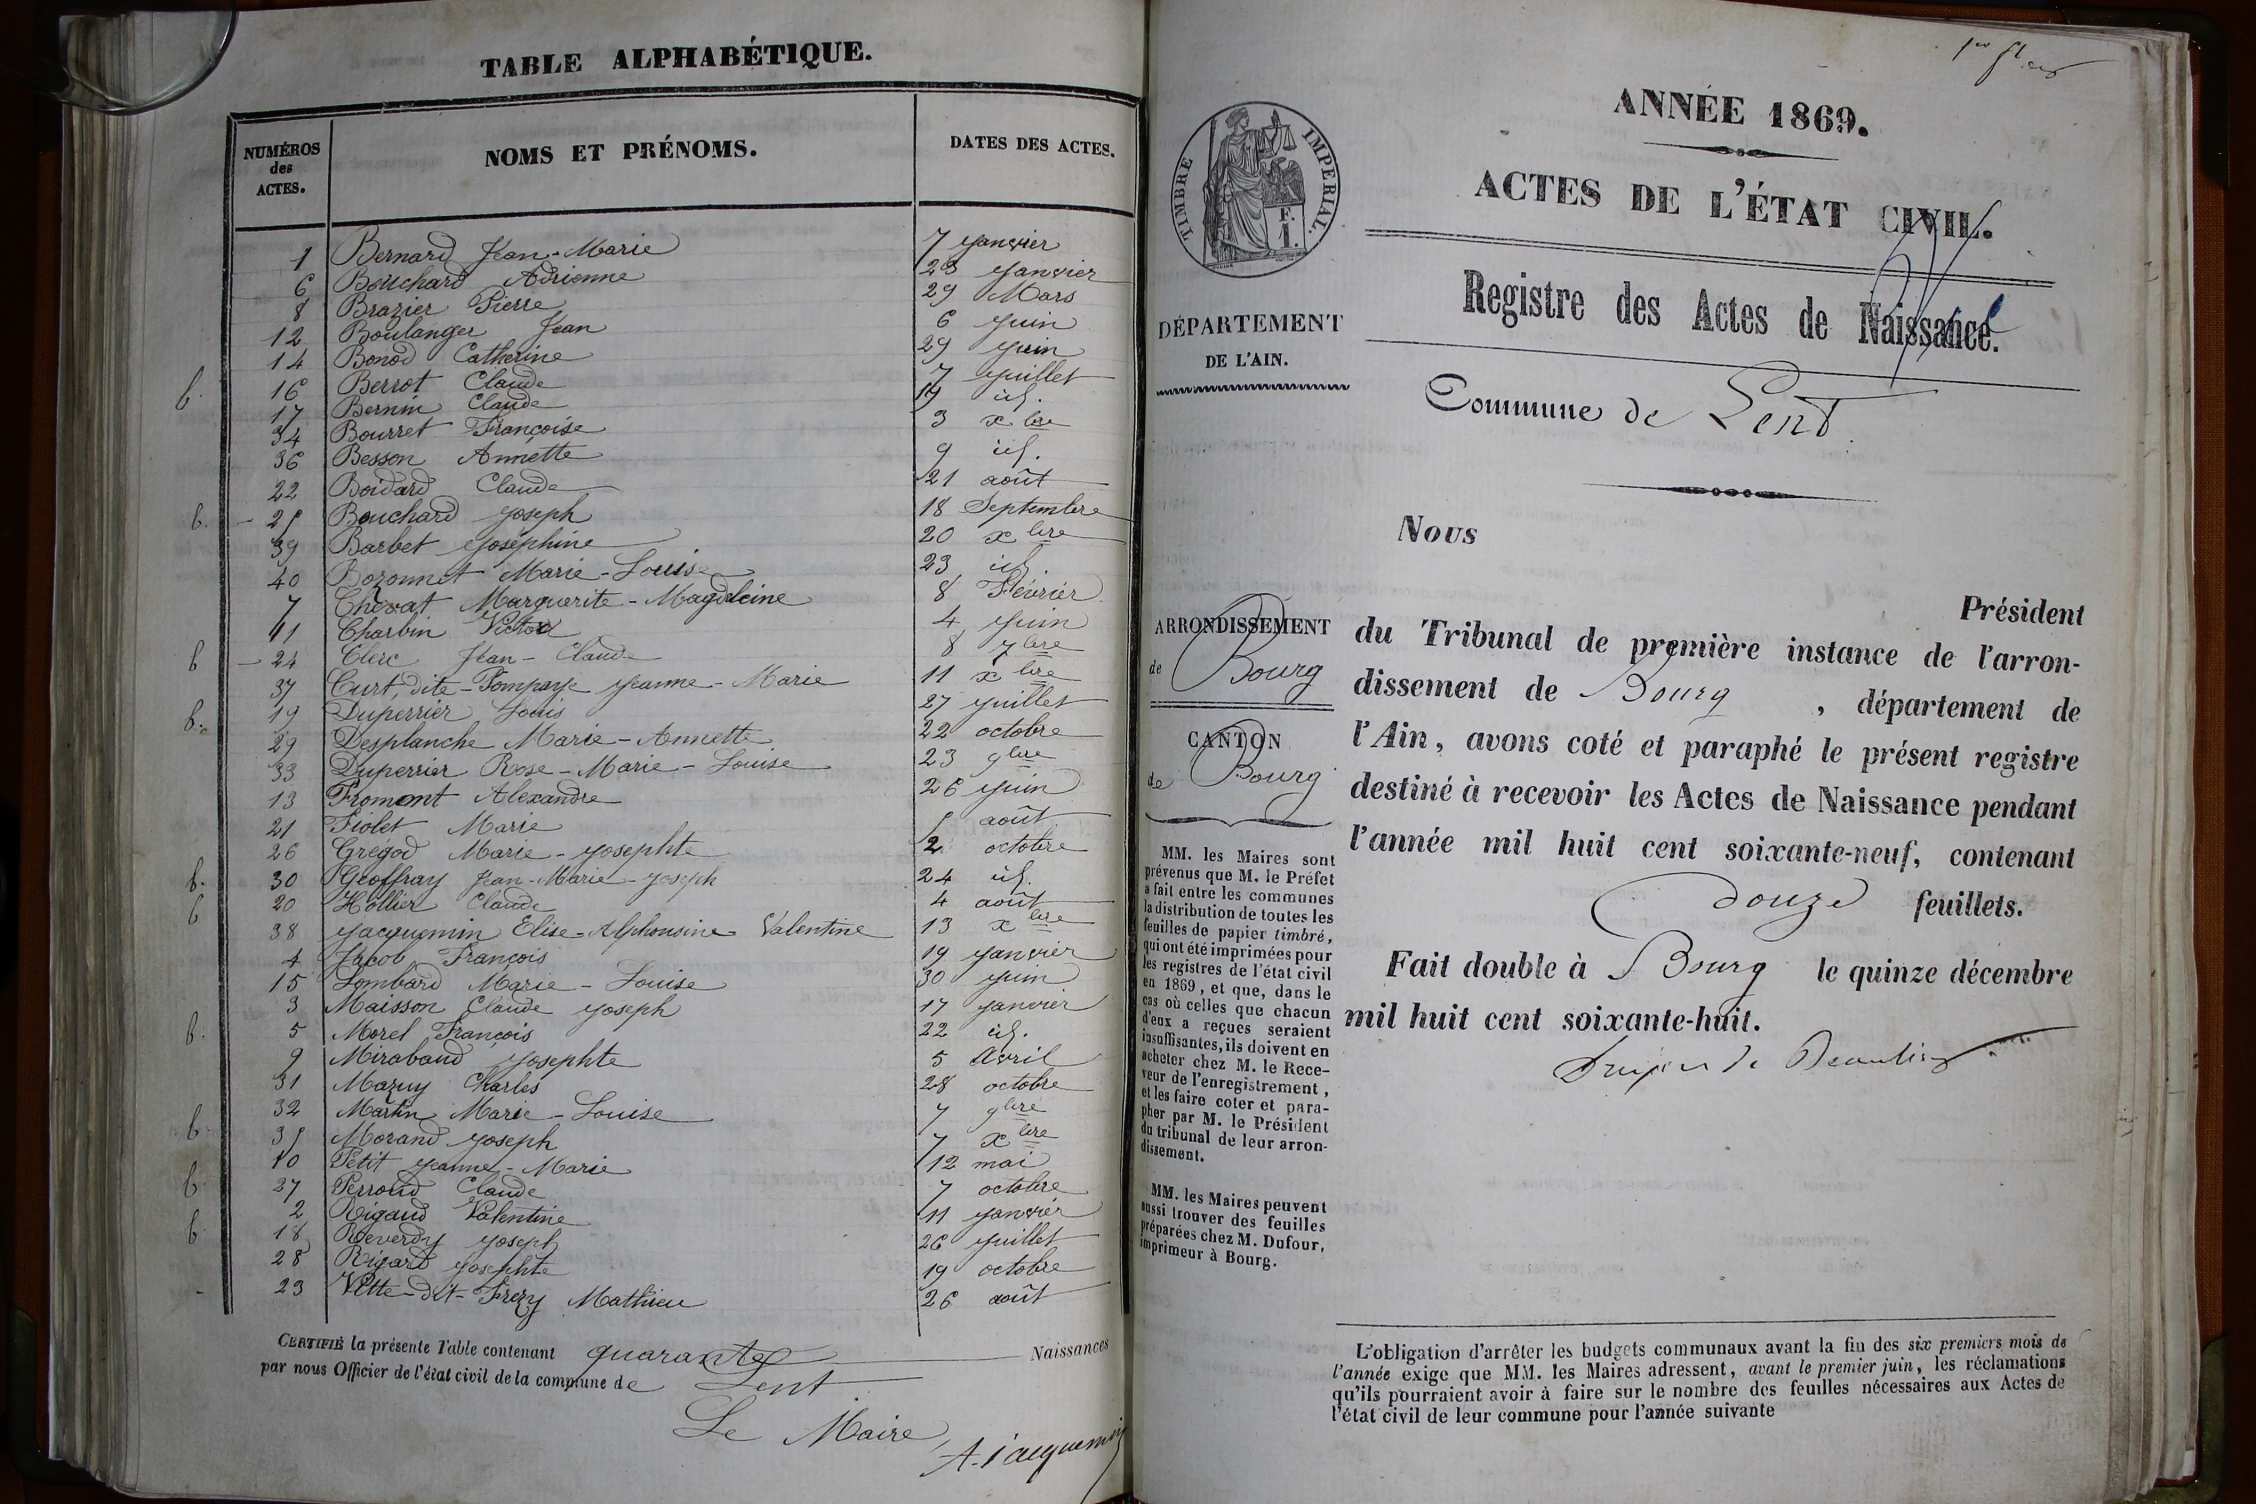 TABLE ALPHABÉTIQUE.
NUMÉROS des ACTES.
NOMS ET PRÉNOMS.
DATES DES ACTES.
1 Bernard Jean-Marie 7 Janvier
6 Bouchard Adrienne 23 Janvier
8 Brazier Pierre 29 Mars
12 Boulanger Jean 6 Juin
14 Bonod Catherine 29 Juin
b. 16 Berrot Claude 7 Juillet
17 Bernin Claude 19 id.
34 Bourret Françoise 3 xbre
36 Besson Annette 9 id.
22 Boidard Claude 21 août
b. - 25 Bouchard Joseph 18 Septembre
39 Barbet Joséphine 20 xbre
40 Bozonnet Marie-Louise 23 id.
7 Chevat Marguerite-Magdeleine 8 Février
11 Charbin Victor 4 Juin
b - 24 Clerc Jean-Claude 8 7bre
37 Curt, dite-Pompaye Jeanne-Marie 11 xbre
b. 19 Duperrier Louis 27 Juillet
29 Desplanche Marie-Annette 22 octobre
33 Duperrier Rose-Marie-Louise 23 9bre
13 Fromont Alexandre 26 Juin
21 Fiolet Marie 5 août
26 Gregod Marie-Josephte 2 octobre
b. 30 Geoffray Jean-Marie-Joseph 24 id.
b 20 Hollier Claude 4 août
38 Jacquemin Elise-Alphonsine Valentine 13 xbre
4 Jacob François 19 Janvier
15 Lombard Marie-Louise 30 Juin
3 Maisson Claude Joseph 17 Janvier
b. 5 Morel François 22 id.
9 Mirabaud Josephte 5 Avril
31 Mazuy Charles 28 octobre
32 Martin Marie-Louise 7 9bre
b 35 Morand Joseph 7 xbre
10 Petit Jeanne-Marie 12 mai
b 27 Perroud Claude 7 octobre
2 Rigaud Valentine 11 Janvier
b 18 Reverdy Joseph 26 Juillet
28 Rigard Josephte 19 octobre
23 Vitte-dit-Frezy Mathieu 26 août
CERTIFIÉ la présente Table contenant quarante Naissances
par nous Officier de l'état civil de la commune de Lent
Le Maire,
A. Jacquemin
TIMBRE IMPÉRIAL.
F. I.
DÉPARTEMENT
DE L'AIN.
ARRONDISSEMENT
de Bourg
CANTON
de Bourg
MM. les Maires sont
prévenus que M. le Préfet
a fait entre les communes
la distribution de toutes les
feuilles de papier timbré,
qui ont été imprimées pour
les registres de l'état civil
en 1869, et que, dans le
cas où celles que chacun
d'eux a reçues seraient
insuffisantes, ils doivent en
acheter chez M. le Rece-
veur de l'enregistrement,
et les faire coter et para-
pher par M. le Président
du tribunal de leur arron-
dissement.
MM. les Maires peuvent
aussi trouver des feuilles
préparées chez M. Dufour,
imprimeur à Bourg.
ANNÉE 1869.
ACTES DE L'ÉTAT CIVIL.
Registre des Actes de Naissance.
Commune de Lent
Nous
Président
du Tribunal de première instance de l'arron-
dissement de Bourg, département de
l'Ain, avons coté et paraphé le présent registre
destiné à recevoir les Actes de Naissance pendant
l'année mil huit cent soixante-neuf, contenant
douze feuillets.
Fait double à Bourg le quinze décembre
mil huit cent soixante-huit.
L'obligation d'arrêter les budgets communaux avant la fin des six premiers mois de
l'année exige que MM. les Maires adressent, avant le premier juin, les réclamations
qu'ils pourraient avoir à faire sur le nombre des feuilles nécessaires aux Actes de
l'état civil de leur commune pour l'année suivante